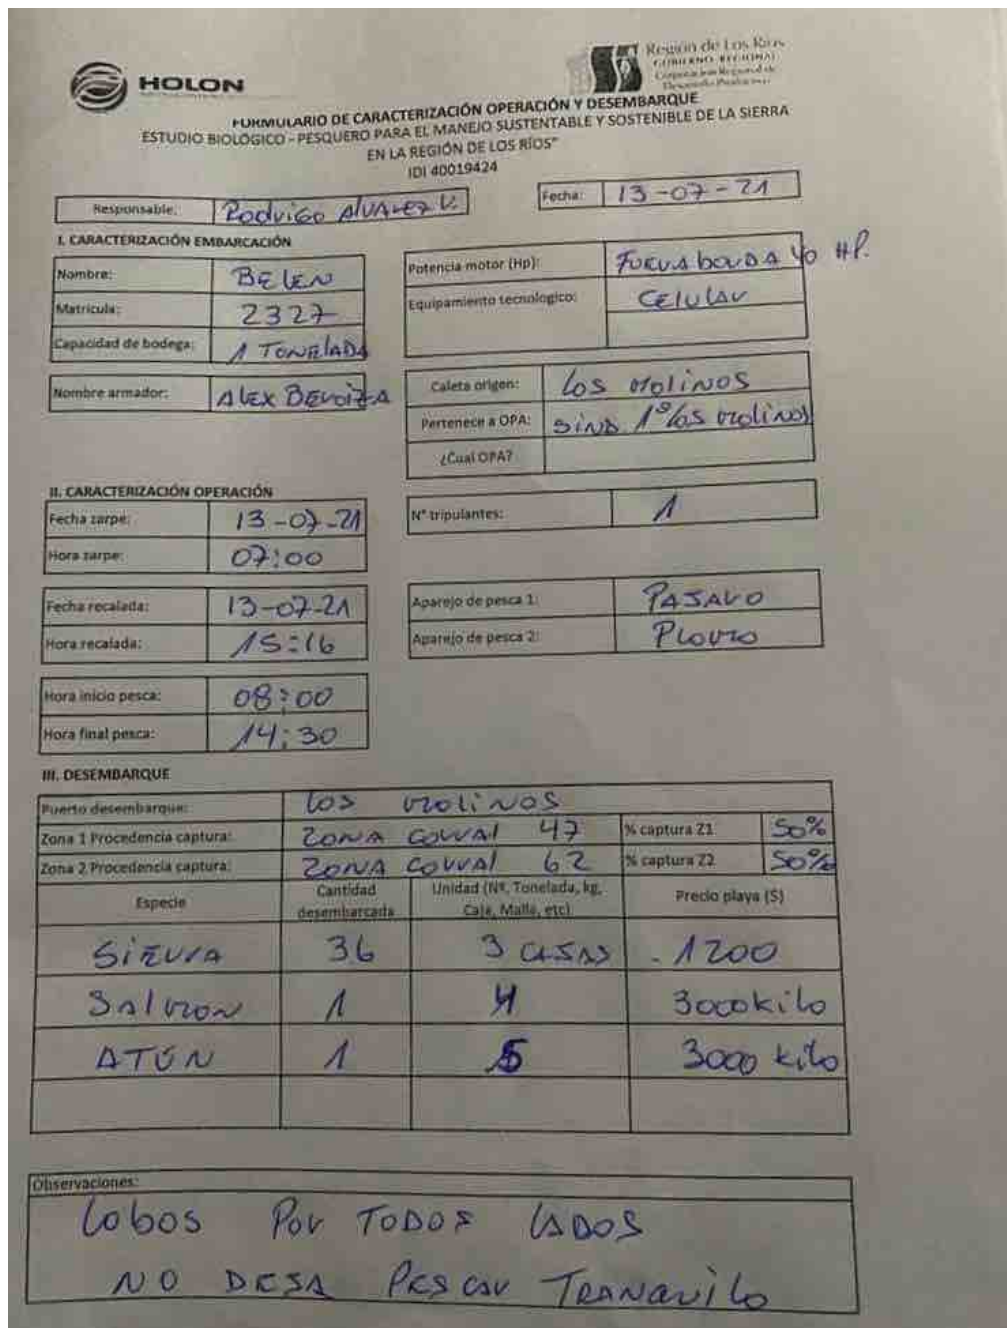 HOLON
Región de Los Ríos
GOBIERNO REGIONAL
Corporación Regional de
Desarrollo Productivo
FORMULARIO DE CARACTERIZACIÓN OPERACIÓN Y DESEMBARQUE
ESTUDIO BIOLÓGICO - PESQUERO PARA EL MANEJO SUSTENTABLE Y SOSTENIBLE DE LA SIERRA
EN LA REGIÓN DE LOS RÍOS"
IDI 40019424
Responsable: Rodrigo Alvarez V. Fecha: 13-07-21
I. CARACTERIZACIÓN EMBARCACIÓN
Nombre: BELEN
Matrícula: 2327
Capacidad de bodega: 1 TONELADA
Nombre armador: ALEX
Potencia motor (Hp): Fuera borda 40 HP.
Equipamiento tecnologico: Celular
Caleta origen: Los molinos
Pertenece a OPA: sind 1º los molinos
¿Cual OPA?
II. CARACTERIZACIÓN OPERACIÓN
Fecha zarpe: 13-07-21
Hora zarpe: 07:00
N° tripulantes: 1
Fecha recalada: 13-07-21
Hora recalada: 15:16
Aparejo de pesca 1: PAJARO
Aparejo de pesca 2: Plomo
Hora inicio pesca: 08:00
Hora final pesca: 14:30
III. DESEMBARQUE
Puerto desembarque: Los molinos
Zona 1 Procedencia captura: ZONA corral 47 % captura Z1 50%
Zona 2 Procedencia captura: ZONA corral 62 % captura Z2 50%
Especie Cantidad desembarcada Unidad (Nº, Tonelada, kg, Caja, Malla, etc) Precio playa ($)
Sierra 36 3 CAJAS . 1200
Salmon 1 4 3000 kilo
ATÚN 1 5 3000 kilo
Observaciones:
Lobos Por TODOS LADOS
NO DEJA PESCAR TRANQUILO